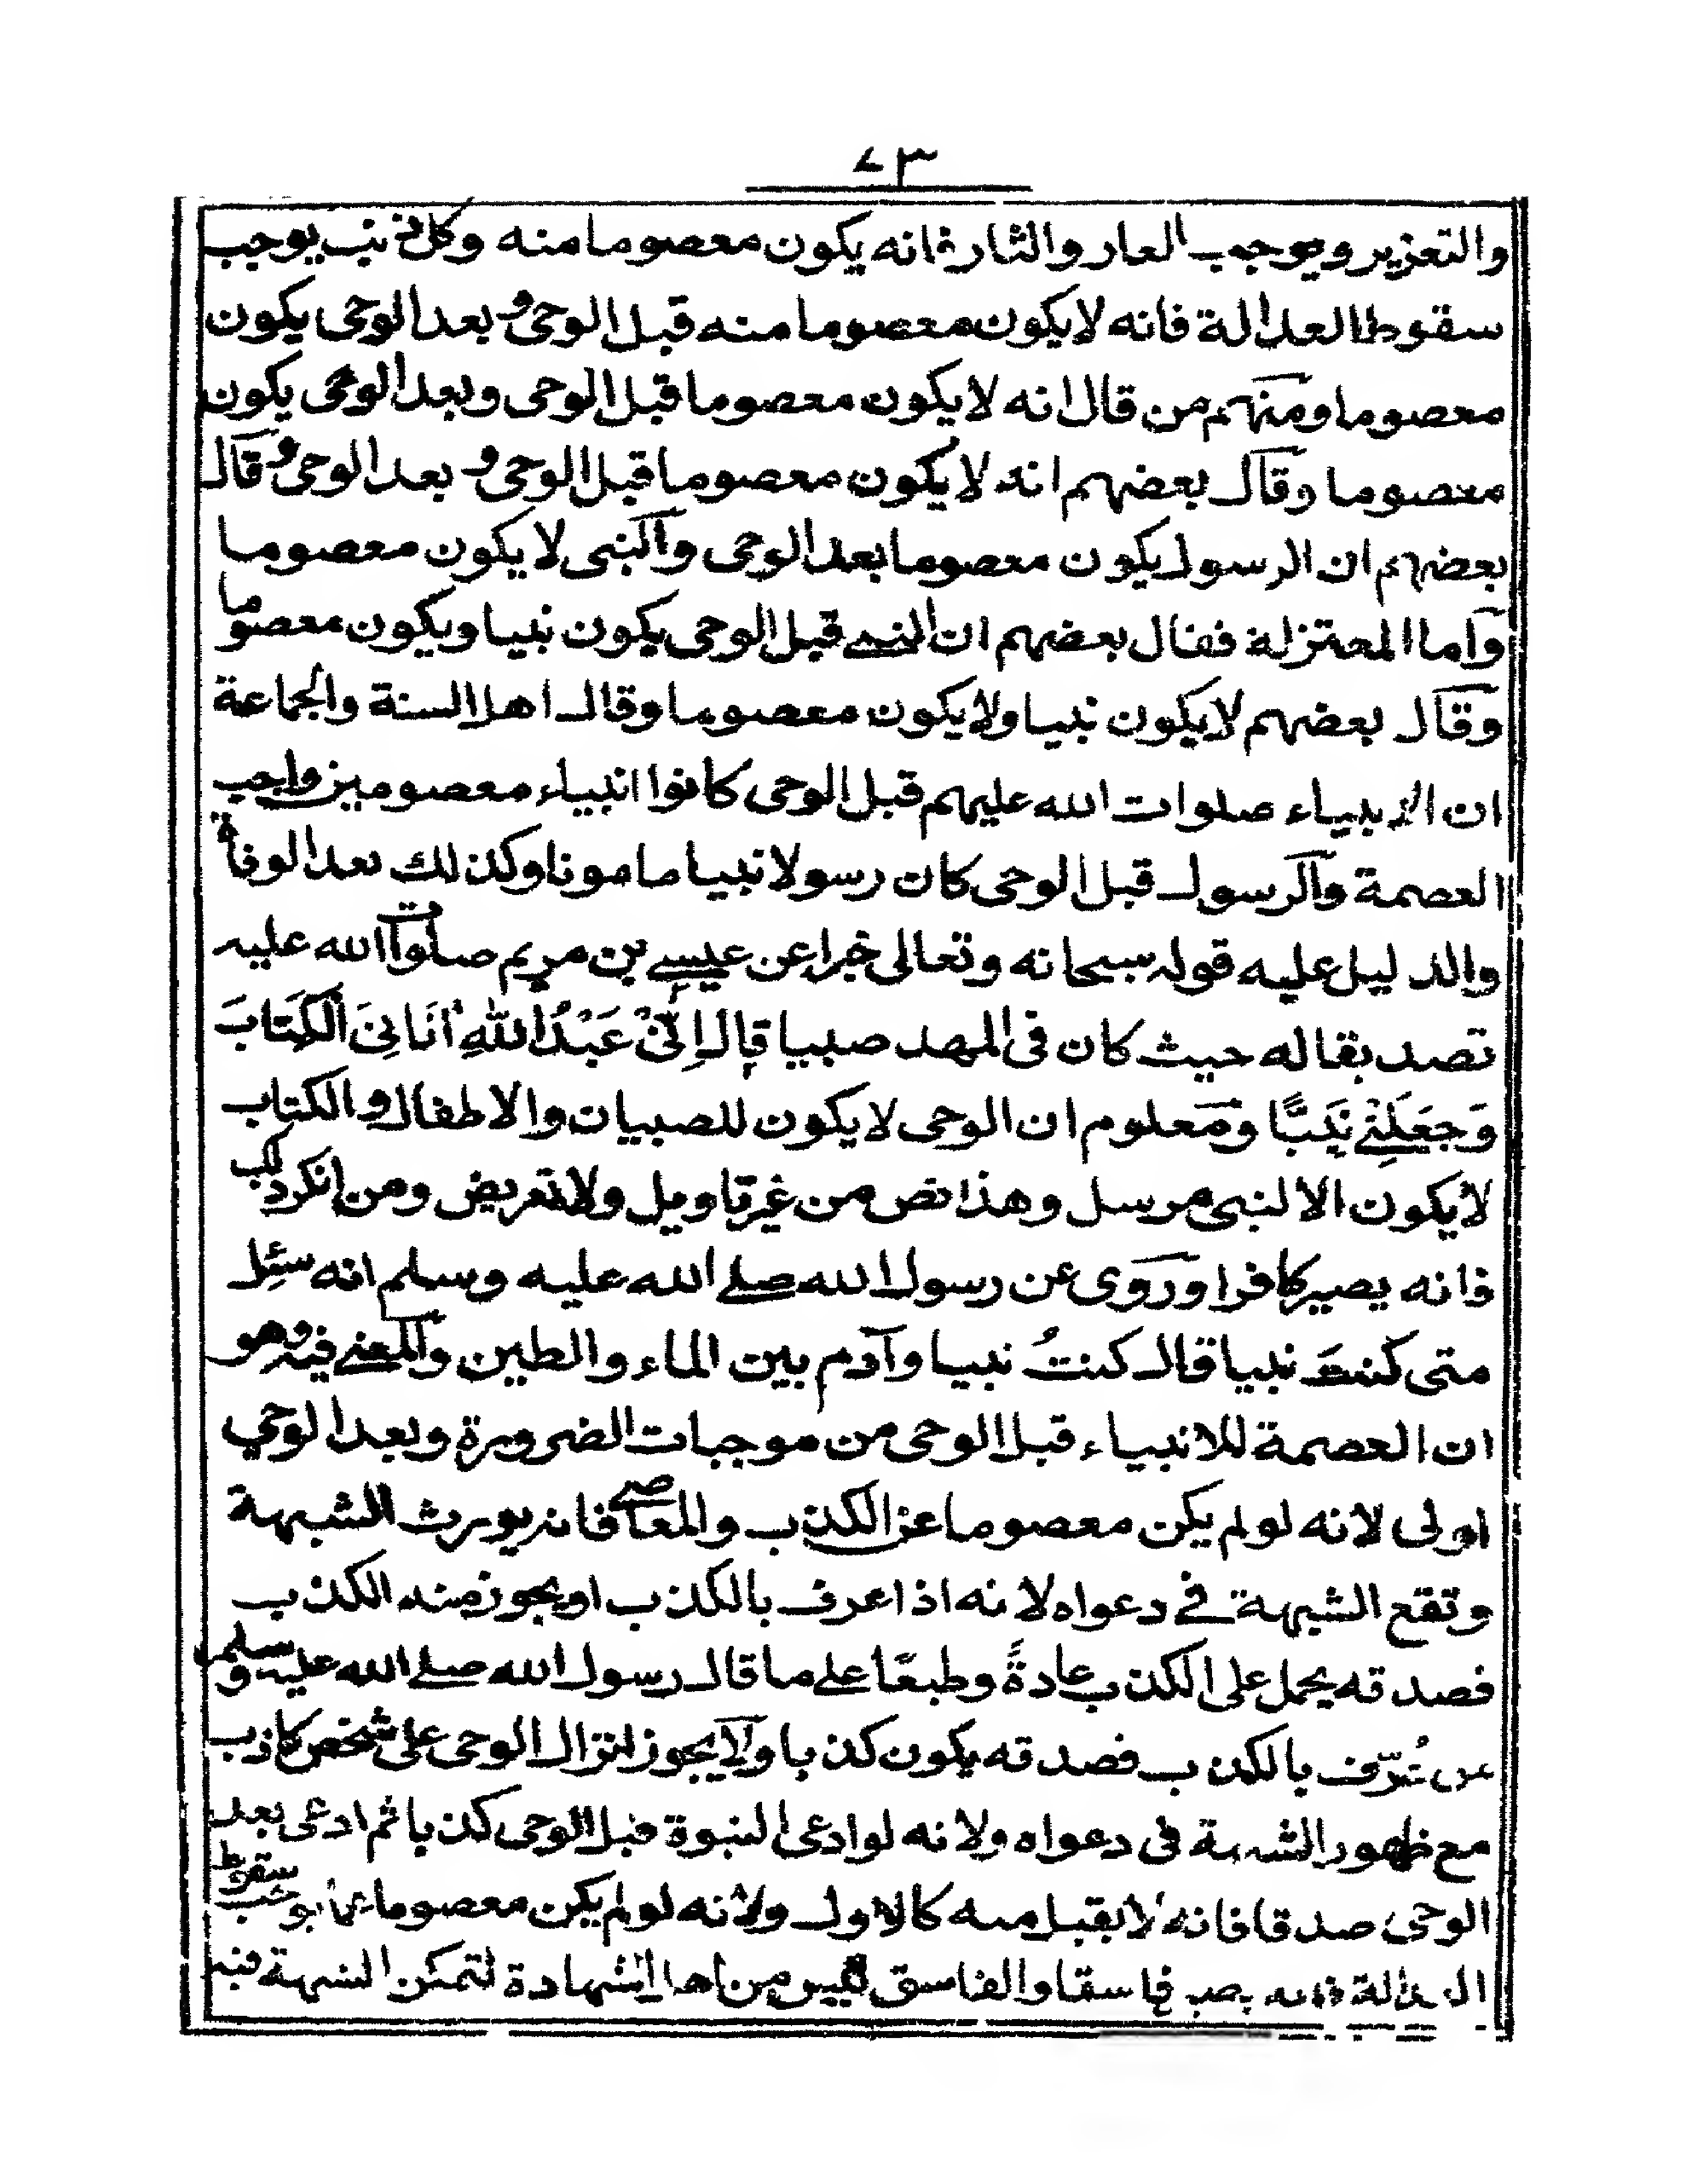 ٧٣
والتعزير ويوجب العار والنار فانه يكون معصوما منه وكل ذنب يوجب
سقوط العدالة فانه لا يكون معصوما منه قبل الوحى و بعد الوحى يكون
معصوما ومنهم من قال انه لا يكون معصوما قبل الوحى وبعد الوحى يكون
معصوما وقال بعضهم انه لا يكون معصوما قبل الوحى و بعد الوحى و قال
بعضهم ان الرسول يكون معصوما بعد الوحى والنبى لا يكون معصوما
واما المعتزلة فقال بعضهم ان النبى قبل الوحى يكون نبيا ويكون معصوما
وقال بعضهم لا يكون نبيا ولا يكون معصوما وقال اهل السنة والجماعة
ان الانبياء صلوات الله عليهم قبل الوحى كانوا انبياء معصومين واجب
العصمة والرسول قبل الوحى كان رسولا نبيا مامونا وكذلك بعد الوفاة
والدليل عليه قوله سبحانه وتعالى خبرا عن عيسى بن مريم صلوات الله عليه
تصديقا له حيث كان فى المهد صبيا قال اِنِّىْ عَبْدُ اللهِ اٰتَانِىَ الْكِتَابَ
وَجَعَلَنِىْ نَبِيًّا ومعلوم ان الوحى لا يكون للصبيان والاطفال و الكتاب
لا يكون الا لنبى مرسل وهذا نص من غير تاويل ولا تعريض ومن انكر ذلك
فانه يصير كافرا وروى عن رسول الله صلى الله عليه وسلم انه سئل
متى كنتَ نبيا قال كنتُ نبيا وآدم بين الماء والطين والمعنى فيه وهو
ان العصمة للانبياء قبل الوحى من موجبات الضرورة وبعد الوحي
اولى لانه لو لم يكن معصوما عن الكذب والمعاصى فانه يورث الشبهة
وتقع الشبهة فى دعواه لانه اذا عرف بالكذب او يجوز منه الكذب
فصدقه يحمل على الكذب عادةً وطبعًا على ما قال رسول الله صلى الله عليه وسلم
من عُرّف بالكذب فصدقه يكون كذبا ولا يجوز انزال الوحى على شخص كاذب
مع ظهور الشبهة فى دعواه ولانه لو ادعى النبوة قبل الوحى كذبا ثم ادعى بعد
الوحى صدقا فانه لا يقبل منه كالاول ولانه لو لم يكن معصوما عما يوجب سقوط
العدالة فانه يصير فاسقا والفاسق ليس من اهل الشهادة لتمكن الشبهة فيه